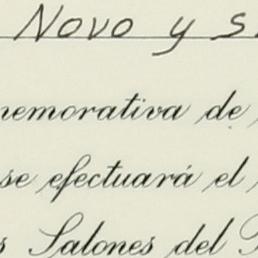 Novo y S
nemorativa de
se efectuará el
s Salones del